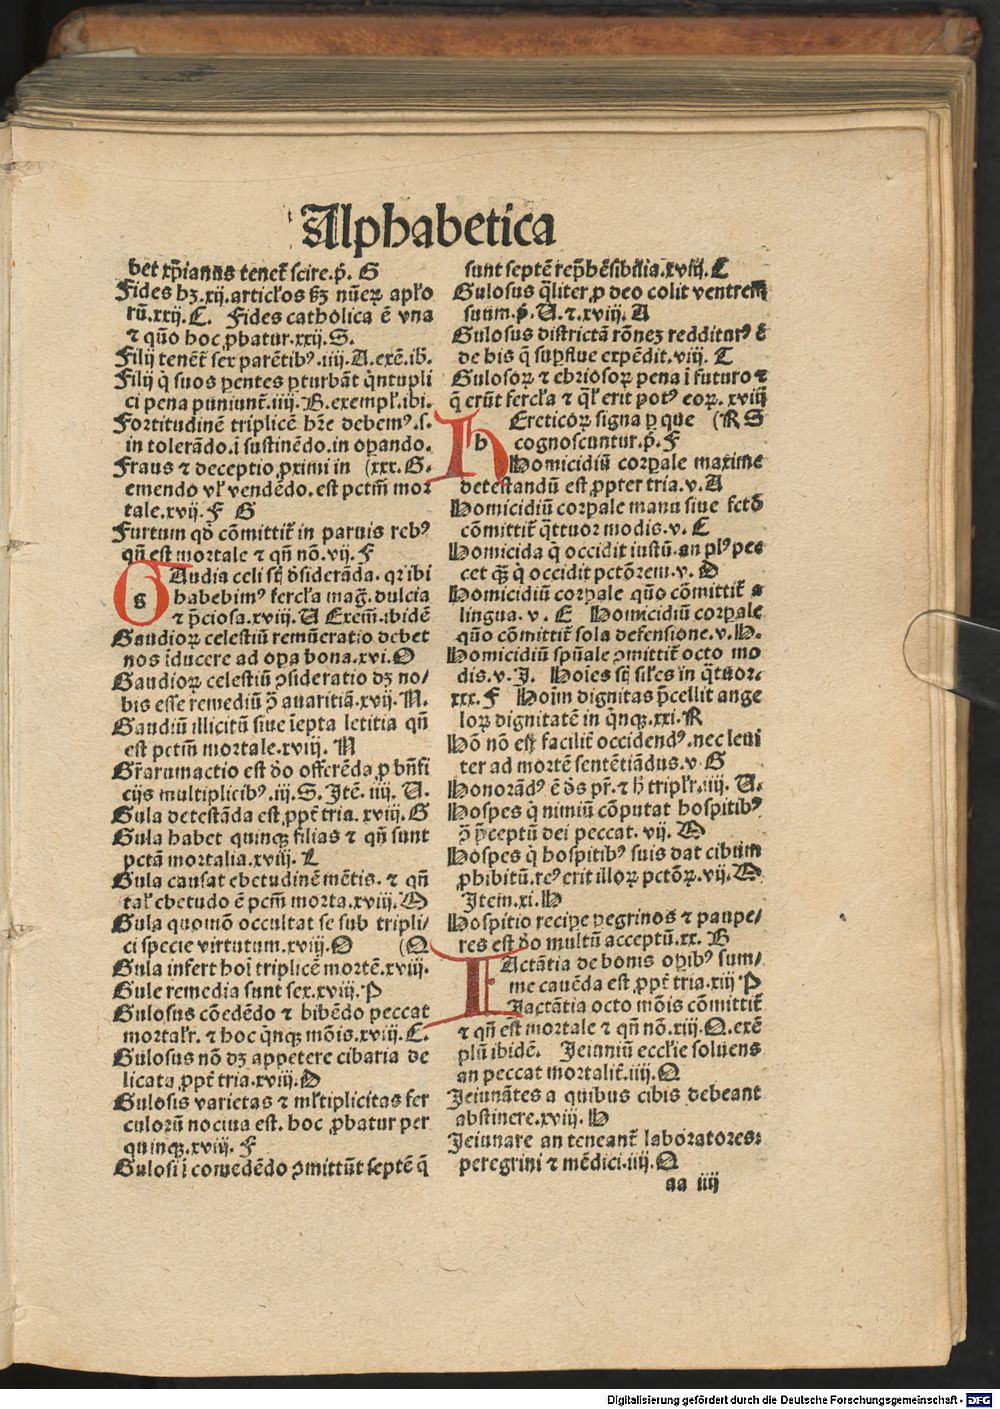 Alphabetica
bet xp̄ianus tenet̄ scire.p̄. G
Fides hꝫ.xij.articl'os ẜꝫ nūeꝝ apl'o
rū.xxij.C. Fides catholica ē vna
⁊ quō hoc ꝓbatur.xxij.S.
Filij tenēt̄ sex parētibꝰ.iiij.A.exē.ib̄.
Filij q̄ suos ꝑentes ꝑturbāt q̄ntupli
ci pena puniunt̄.iiij.B.exempl'.ibi.
Fortitudinē triplicē hr̄e debemꝰ.s.
in tolerādo.ī sustinēdo.in oꝑando.
Fraus ⁊ deceptio ꝓximi in (xxx.G.
emendo vl' vendēdo.est pctm̄ mor
tale.xvij.F G
Furtum qd̄ cōmittit̄ in paruis rebꝰ
qn̄ est mortale ⁊ qn̄ nō.vij.F
GAudia celi st̄ d̄siderāda.qr ibi
habebimꝰ fercl'a maḡ.dulcia
⁊ p̄ciosa.xviij.V Exem̄.ibidē
Gaudioꝝ celestiū remūeratio debet
nos īducere ad oꝑa bona.xvi.O
Gaudioꝝ celestiū ꝯsideratio dꝫ no/
bis esse remediū ꝯ̄ auaritiā.xvij.N.
Gaudiū illicitū siue īepta letitia qn̄
est pctm̄ mortale.xviij. N
Gr̄arumactio est d̄o offerēda ꝓ bn̄fi
cijs multiplicibꝰ.iij.S.Itē. iiij. V.
Gula detestāda est ꝓpt̄ tria.xviij.G
Gula habet quinqꝫ filias ⁊ qn̄ sunt
pctā mortalia.xviij. L
Gula causat ebetudinē mētis. ⁊ qn̄
tal' ebetudo ē pctm̄ morta.xviij.M
Gula quomō occultat se sub tripli/
ci specie virtutum.xviij.O (Q
Gula infert hoī triplicē mortē.xviij.
Gule remedia sunt sex.xviij.P
Gulosus cōedēdo ⁊ bibēdo peccat
mortalr̄. ⁊ hoc q̄nqꝫ mōis.xviij.C.
Gulosus nō dꝫ appetere cibaria de
licata ꝓpt̄ tria.xviij.D
Gulosis varietas ⁊ ml'tiplicitas fer
culorū nociua est. hoc ꝓbatur per
quinqꝫ.xviij. F
Gulosi ī comedēdo ꝯmittūt septē q̄
sunt septē rep̄hēsibilia.xviij.E
Gulosus q̄liter ꝓ deo colit ventrem
suum.p̄.V.⁊.xviij. A
Gulosus districtā rōneꝫ redditurꝰ ē
de his q̄ suꝑflue expēdit.viij. T
Gulosoꝝ ⁊ ebriosoꝝ pena ī futuro ⁊
q̄ erūt fercl'a ⁊ ql' erit potꝰ eoꝝ. xviij
hEreticoꝝ signa ꝑ que (R S
cognoscuntur.p̄.F
Homicidiū corꝑale maxime
detestandū est ꝓpter tria.v.A
Homicidiū corꝑale manu siue fctō
cōmittit̄ q̄ttuor modis.v. C
Homicida q̄ occidit iustū.an plꝰ pec
cet qꝫ̄ q̄ occidit pctōrem.v. D
Homicidiū corꝑale quō cōmittit̄ a
lingua. v. E Homicidiū corꝑale
quō cōmittit̄ sola defensione.v.H.
Homicidiū spūale ꝯmittit̄ octo mo
dis.v.J. Hoīes st̄ siles in q̄tuor.
xxx.F Hoīm dignitas p̄cellit ange
loꝝ dignitatē in q̄nqꝫ.xxi.R
Hō nō est facilit̄ occidendꝰ.nec leui
ter ad mortē sentētiādus.v G
Honorādꝰ ē d̄s pr̄.⁊ h̄ triplr̄.iiij. V.
Hospes q̄ nimiū cōputat hospitibꝰ
ꝯ̄ p̄ceptū dei peccat. vij. M
Hospes q̄ hospitibꝰ suis dat cibum
ꝓhibitū.reꝰ erit illoꝝ pctōꝝ.vij.M
Item.xi.H
Hospitio recipe ꝑegrinos ⁊ paupe/
res est d̄o multū acceptū.xx. B
IActātia de bonis oꝑibꝰ sum/
me cauēda est ꝓpt̄ tria.xiij P
Iactātia octo mōis cōmittit̄
⁊ qn̄ est mortale ⁊ qn̄ nō.xiij.Q.exē
plū ibidē. Ieiuniū eccl'ie soluens
an peccat mortalit̄.iiij.Q
Ieiunātes a quibus cibis debeant
abstinere.xviij. H
Ieiunare an teneant̄ laboratores:
peregrini ⁊ mēdici.iiij.Q
aa iiij
Digitalisierung gefördert durch die Deutsche Forschungsgemeinschaft - DFG